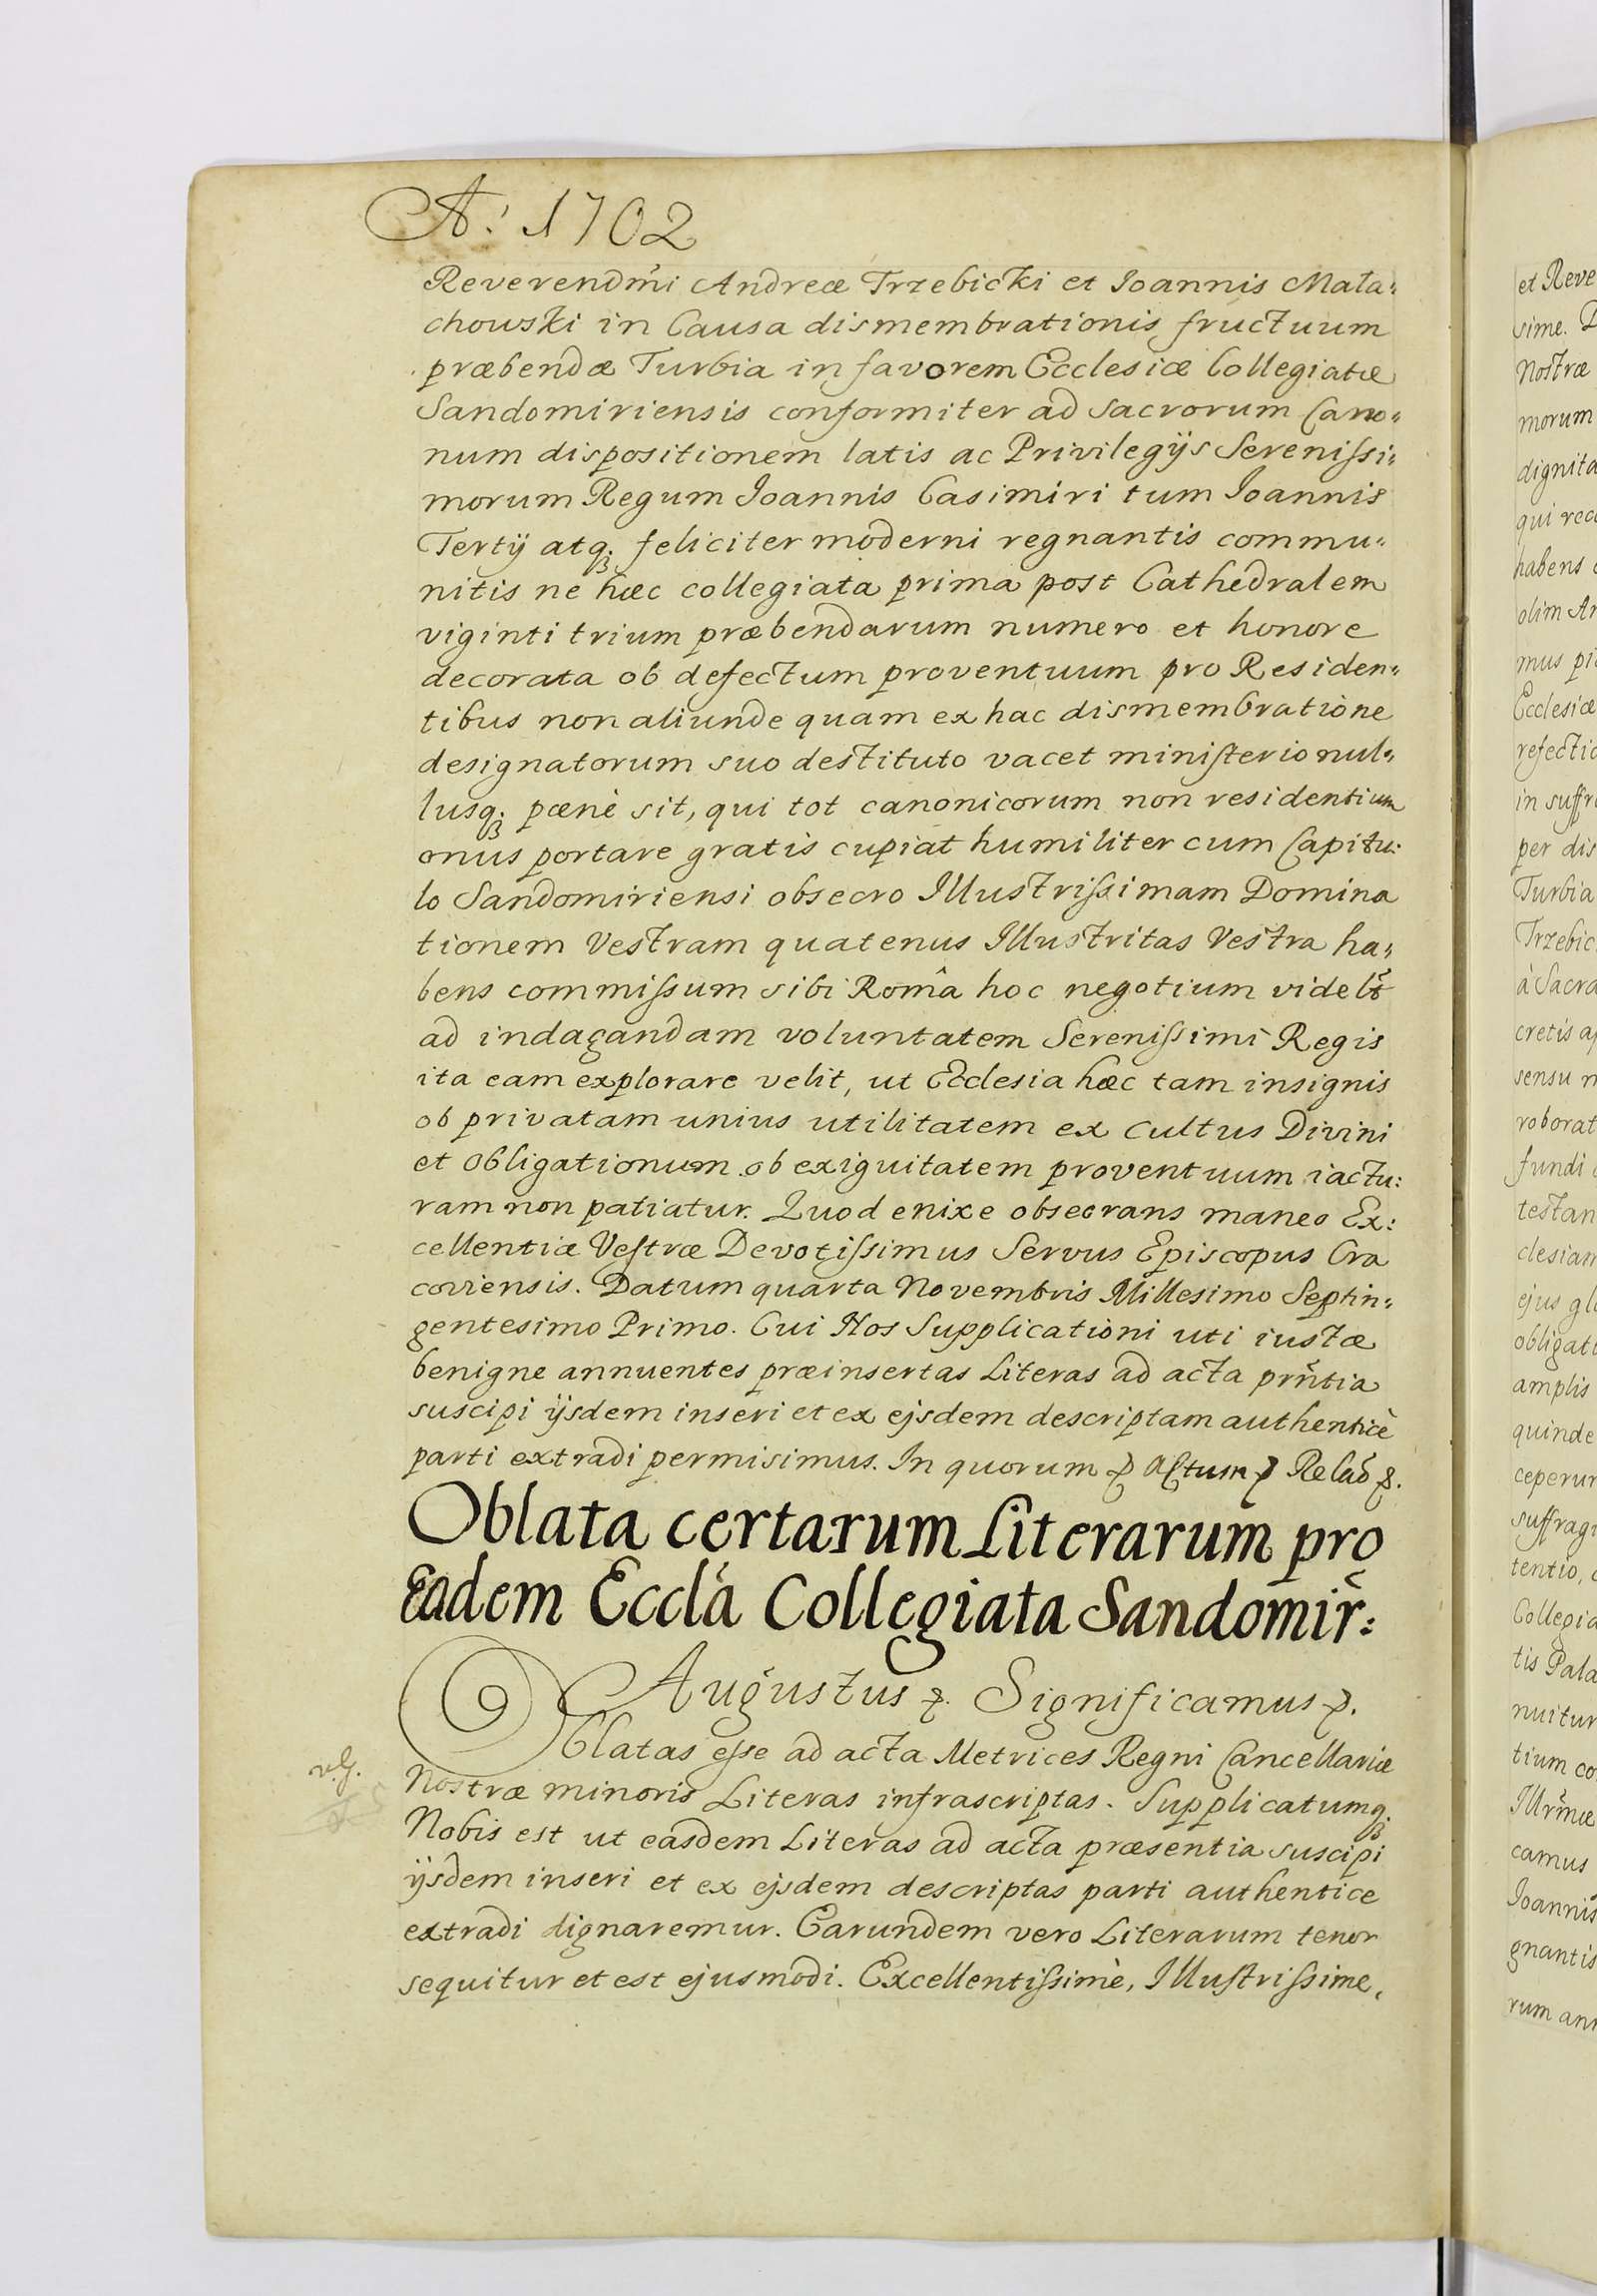 A: 1702
Reverendm̃i Andreæ Trzebicki et Ioannis Mała-
chowski in Causa dismembrationis fructuum
præbendæ Turbia in favorem Ecclesiæ Collegiatæ
Sandomiriensis conformiter ad Sacrorum Cano-
num dispositionem latis ac Privilegijs Serenissi-
morum Regum Ioannis Casimiri tum Ioannis
Tertij atq; feliciter moderni regnantis commu-
nitis ne hæc collegiata prima post Cathedralem
viginti trium præbendarum numero et honore
decorata ob defectum proventuum pro Residen-
tibus non aliunde quam ex hac dismembratione
designatorum suo destituto vacet ministerio nul-
lusq; pœnè sit, qui tot canonicorum non residentium
onus portare gratis cupiat humiliter cum Capitu:
lo Sandomiriensi obsecro Illustrissimam Domina
tionem Vestram quatenus Illustritas Vestra ha-
bens commissum sibi Româ hoc negotium videlt̃
ad indagandam voluntatem Serenissimi Regis
ita eam explorare velit, ut Ecclesia hæc tam insignis
ob privatam unius utilitatem ex cultus Divini
et obligationum ob exiguitatem proventuum iactu:
ram non patiatur. Quod enixe obsecrans maneo Ex:
cellentiæ Vestræ Devotissimus Servus Episcopus Cra
coviensis. Datum quarta Novembris Millesimo Septin-
gentesimo Primo. Cui Nos Supplicationi uti iustæ
benigne annuentes præinsertas Literas ad acta prñtia
suscipi ijsdem inseri et ex ejsdem descriptam authenticè
parti extradi permisimus. In quorum &. Actum &. Relaõ &.
Oblata certarum Literarum pro
Eadem Eccla Collegiata Sandomir̃:
Augustus &. Significamus &.
Oblatas esse ad acta Metrices Regni Cancellariæ
Nostræ minoris Literas infrascriptas. Supplicatumq;
Nobis est ut easdem Literas ad acta præsentia suscipi
ijsdem inseri et ex ejsdem descriptas parti authentice
extradi dignaremur. Earundem vero Literarum tenor
sequitur et est ejusmodi. Excellentissimè, Illustrissime,
et Reve
sime. D
Nostræ
morum
dignita
qui rec
habens
olim An
mus pi
Ecclesiæ
refectio
in suffr
per dis
Turbia
Trzebic
à Sacra
cretis a
sensu n
roborat
fundi
testan
clesiam
ejus gl
obligati
amplis
quinde
ceperun
suffragi
tentio,
Collegia
tis Pala
nuitur
tium co
Illrm̃æ
camus
Ioannis
gnantis
rum ann